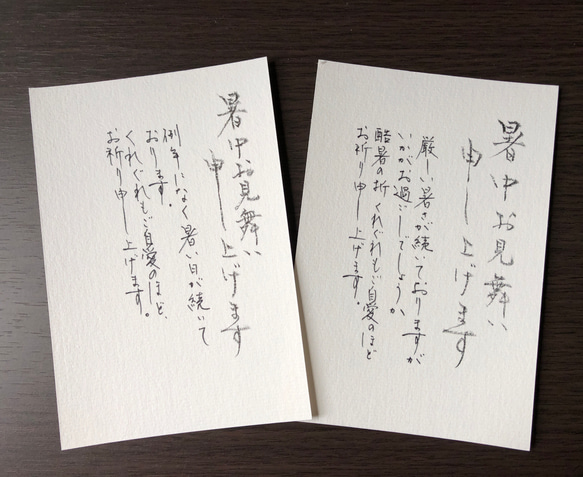 暑中お見舞い
申し上げます
例年になく暑い日が続いて
おります。
くれぐれもご自愛のほど、
お祈り申し上げます。
暑中お見舞い
申し上げます
厳しい暑さが続いておりますが
いかがお過ごしでしょうか
酷暑の折くれぐれもご自愛のほど
お祈り申し上げます。